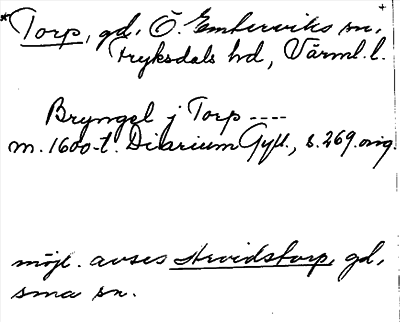 *Torp, gd, Ö. Emterviks sn,
Fryksdals hd, Värml. l.
Bryngel j Torp ----
m. 1600-t. Diarium Gyll., s. 269. orig.
möjl. avses Arvidstorp, gd,
sma sn.